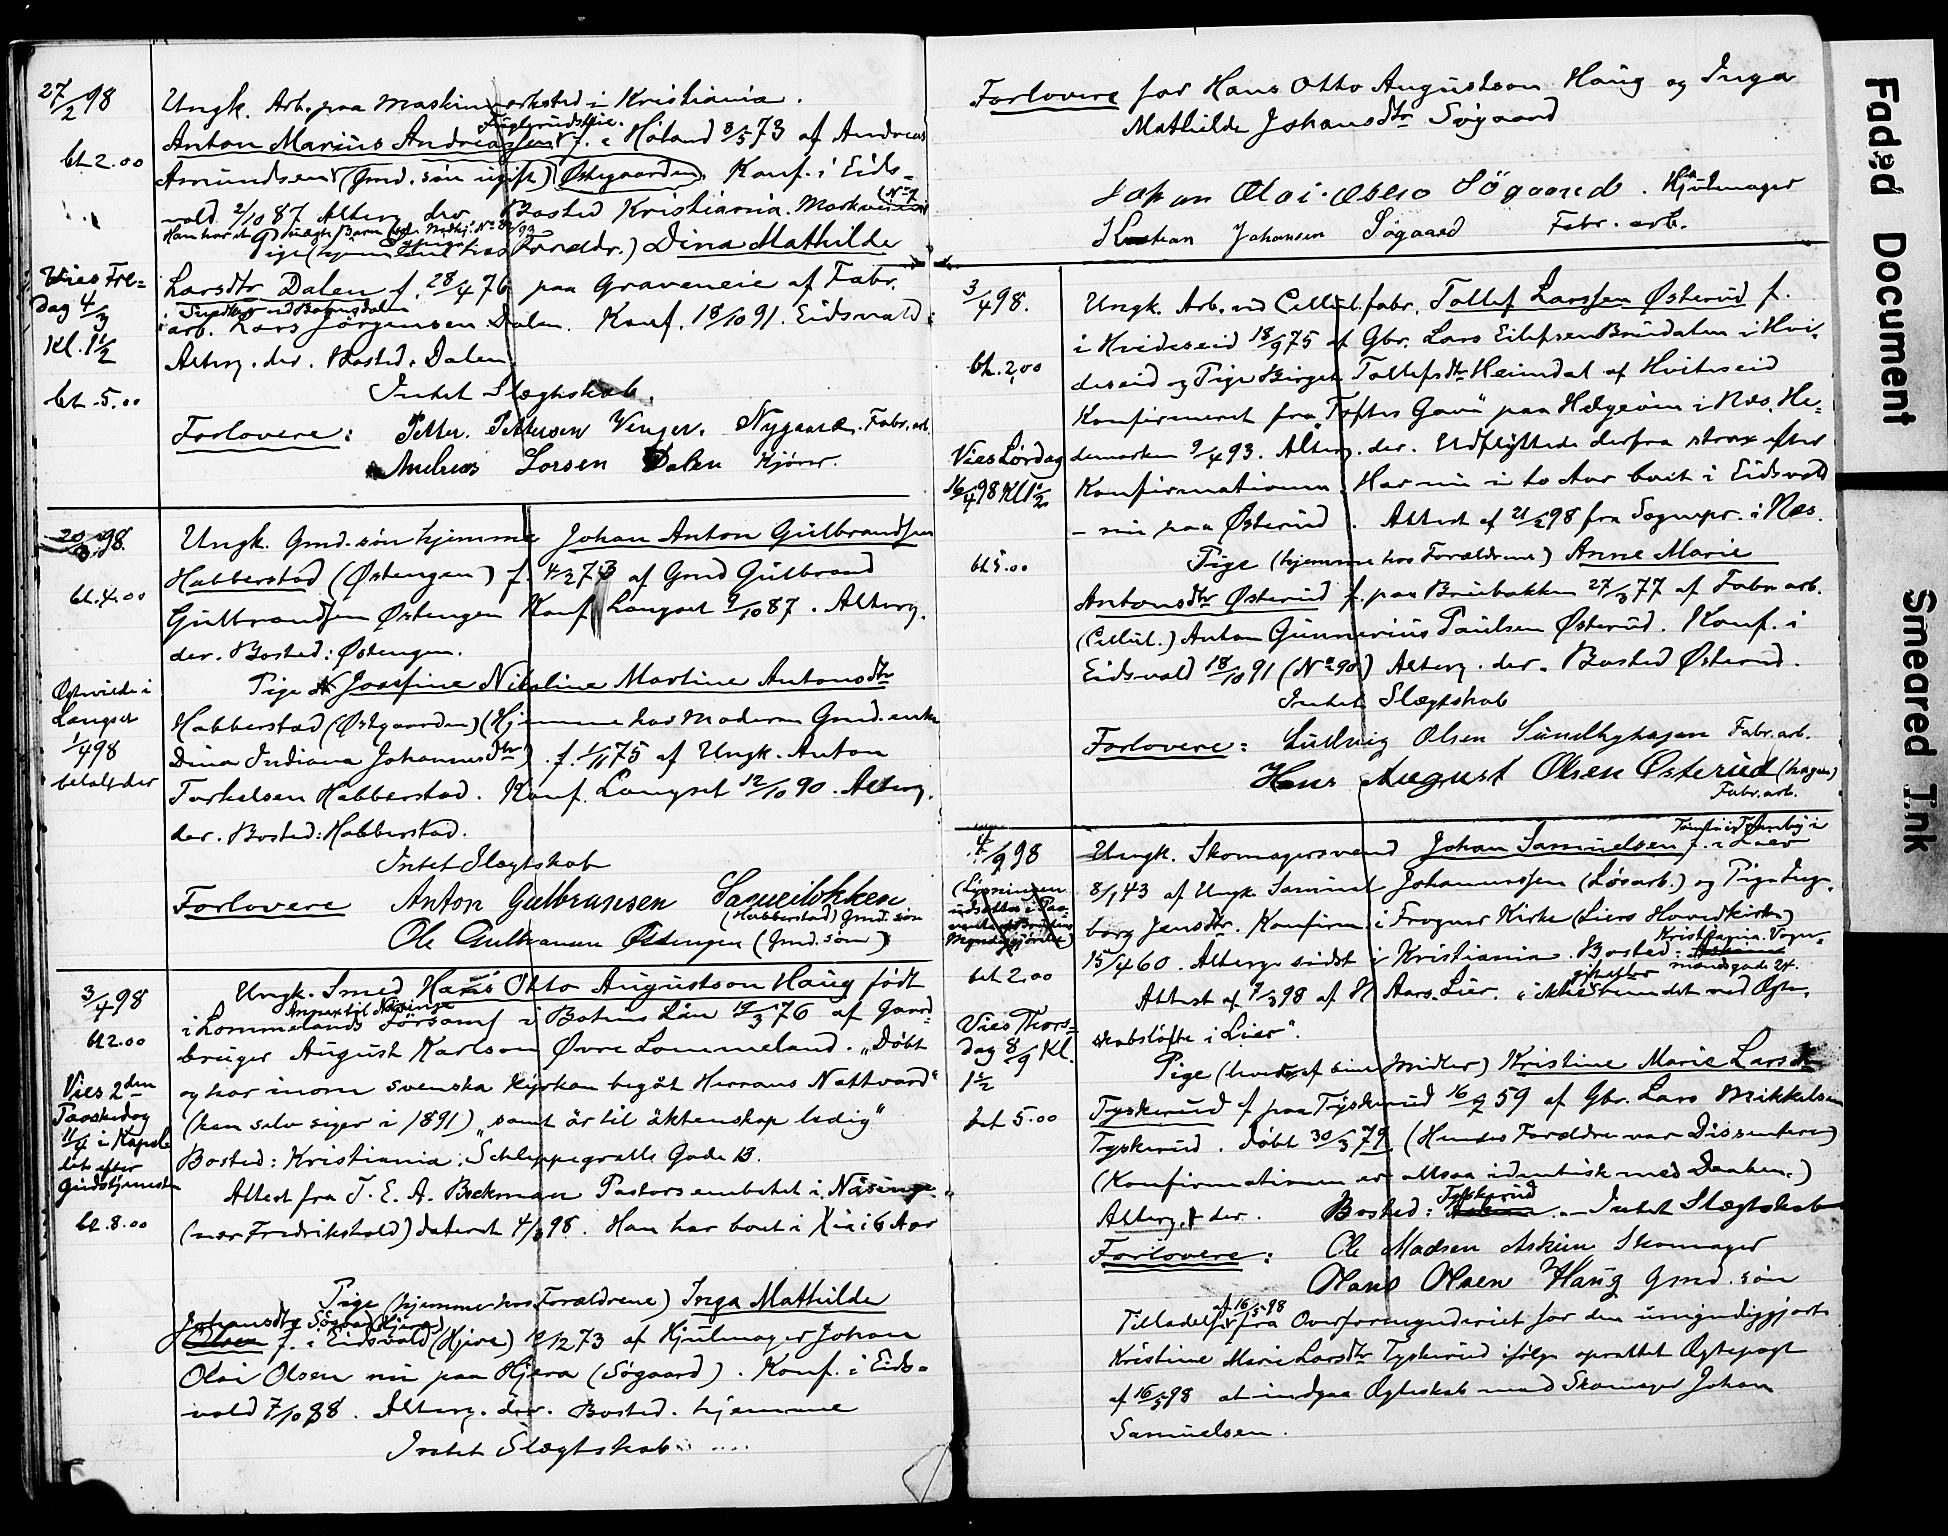 27/2 98
bt 2.00
Ungk. Arb. paa Maskinverksted i Kristiania.
Fuglerudseie.
Anton Marius Andreassen f. i Høland 8/5 73 af Andreas
Amundsen (Gmd. søn ugift) Østgaarden. Konf. i Eids-
vold 2/10 87 Alterg. der. Bosted Kristiania. Markveien
(No 7
Han har et uægte Barn
Pige (hjemme hos Forældr.) Dina Mathilde
Vies Fre-
dag 4/3
Kl. 1 1/2
bt. 5.00
Larsdtr Dalen f. 28/4 76 paa Graveneie af Fabr.
arb. Lars Jørgensen Dalen. Konf. 18/10 91. Eidsvold
Alterg. der. Bosted. Dalen.
Intet Slægtskab.
Forlovere: Petter. Pettersen Venger. Nygaard. Fabr. arb.
Andreas Larsen Dalen Kjører.
20/3 98.
bt. 4.00
Ungk. Gmd. søn hjemme Johan Anton Gulbrandsen
Habberstad (Østengen) f. 4/2 73 af Gmd Gulbrand
Gulbrandsen Østengen Konf. Langset 9/10 87. Alterg.
der. Bosted: Østengen.
Pige Josefine Nikoline Martine Antonsdtr
Ægtviede i
Langset
1/4 98
betalt der
Habberstad (Østgaarden) (Hjemme hos Moderen Gmd. enke
Dina Indiana Johannesdtr) f. 1/11 75 af Ungk. Anton
Torkelsen Habberstad. Konf. Langset 12/10 90. Alterg.
der. Bosted: Habberstad.
Intet Slægtskab
Forlovere Anton Gulbransen Sagueiløkken
(Habberstad) Gmd. søn
Ole Gulbransen Østengen (Gmd. søn)
3/4 98
bt 2.00
Ungk. Smed Hans Otto Augustson Haug født
Annex til Näsinge
i Lommelands Församl i Bohus Län 19/3 76 af Gaard-
bruger August Karlson Øvre Lommeland. „Döbt
og har inom svenska kyrkan begåt Herrans Nattvard“
Vies 2den
Paaskedag
11/4 i Kapel-
let efter
Gudstjenesten
bt. 8.00
(han selv siger i 1891) „samt är til äktenskap ledig“
Bosted: Kristiania. Schleppegrells Gade 13.
Attest fra J. E. A. Beckman Pastorsembetet i Näsinge.
(nær Fredrikshald) dateret 4/3 98. Han har boet i Kria i 6 Aar
Pige (hjemme hos Forældrene) Inga Mathilde
Johansdtr Søgaard (Hjera)
Olsen f. i Eidsvold (Hjera) 10/12 73 af Hjulmager Johan
Olai Olsen nu paa Hjera (Søgaard). Konf. i Eids-
vold 7/10 88. Alterg. der. Bosted. hjemme
Intet Slægtskab
Forlovere for Hans Otto Augustson Haug og Inga
Mathilde Johansdtr Søgaard
Johan Olai Olsen Søgaard. Hjulmager
Kristian Johansen Søgaard Fabr. arb.
3/4 98.
bt. 2,00
Ungk. Arb. ved Cellul. fabr. Tollef Larssen Østerud f.
i Hvideseid 18/9 75 af Gbr. Lars Eilefsen Brudalen i Hvi-
deseid og Pige Birget Tollefsdtr Heimdal af Hviteseid
Konfirmeret fra Toftes Gave paa Helgøen i Næs, He-
Vies Lørdag
16/4 98 Kl 1 1/2
bt 5.00
demarken 9/4 93. Alterg. der. Udflyttede derfra strax efter
Konfirmationen. Har nu i to Aar boet i Eidsvold
– nu paa Østerud. Attest af 21/2 98 fra Sognepr. i Næs.
Pige (hjemme hos Forældrene) Anne Marie
Antonsdtr Østerud f. paa Brubakken 27/3 77 af Fabr. arb.
(Cellul.) Anton Gunnerius Paulsen Østerud. Konf. i
Eidsvold 18/10 91 (No 90) Alterg. der. Bosted Østerud.
Intet Slægtskab
Forlovere: Ludvig Olsen Sundbyhagen Fabr. arb.
Hans August Olsen Østerud (hagen)
Fabr. arb.
98
Ungk. Skomagersvend Johan Samuelsen f. i Lier
8/1 43 af Ungk Samuel Johannessen (Løsarb.) og Pige Inge-
borg Jensdtr. Konfirm. i Frogner Kirke (Liers Hovedkirke)
bt 2.00
Kristiania. Vogn-
15/4 60. Alterg. sidst i Kristiania. Bosted:
mandsgade 24.
Attest af 9/3 98 af H Aars. Lier. „ikke bundet ved Ægte-
Vies Thors-
dag 8/9 Kl.
1 1/2
bt 5.00
skabsløfte i Lier“.
Pige (lever af sine Midler) Kristine Marie Larsdtr
Tyskerud f. paa Tyskerud 16/7 59 af Gbr. Lars Mikkelsen
Tyskerud. Døbt 30/3 79. (Hendes Forældre var Dissentere)
(Konfirmationen er altsaa identisk med Daaben.)
Tyskerud
Alterg. der. Bosted: – Intet Slægtskab
Forlovere: Ole Madsen Askim Skomager
Olaus Olsen Haug Gmd. søn
af 16/5 98
Tilladelse fra Overformynderiet for den umyndiggjorte
Kristine Marie Larsdtr Tyskerud ifølge oprettet Ægtepagt
af 16/5 98 at indgaa Ægteskab med Skomager Johan
Samuelsen.
Faded Document
Smeared Ink